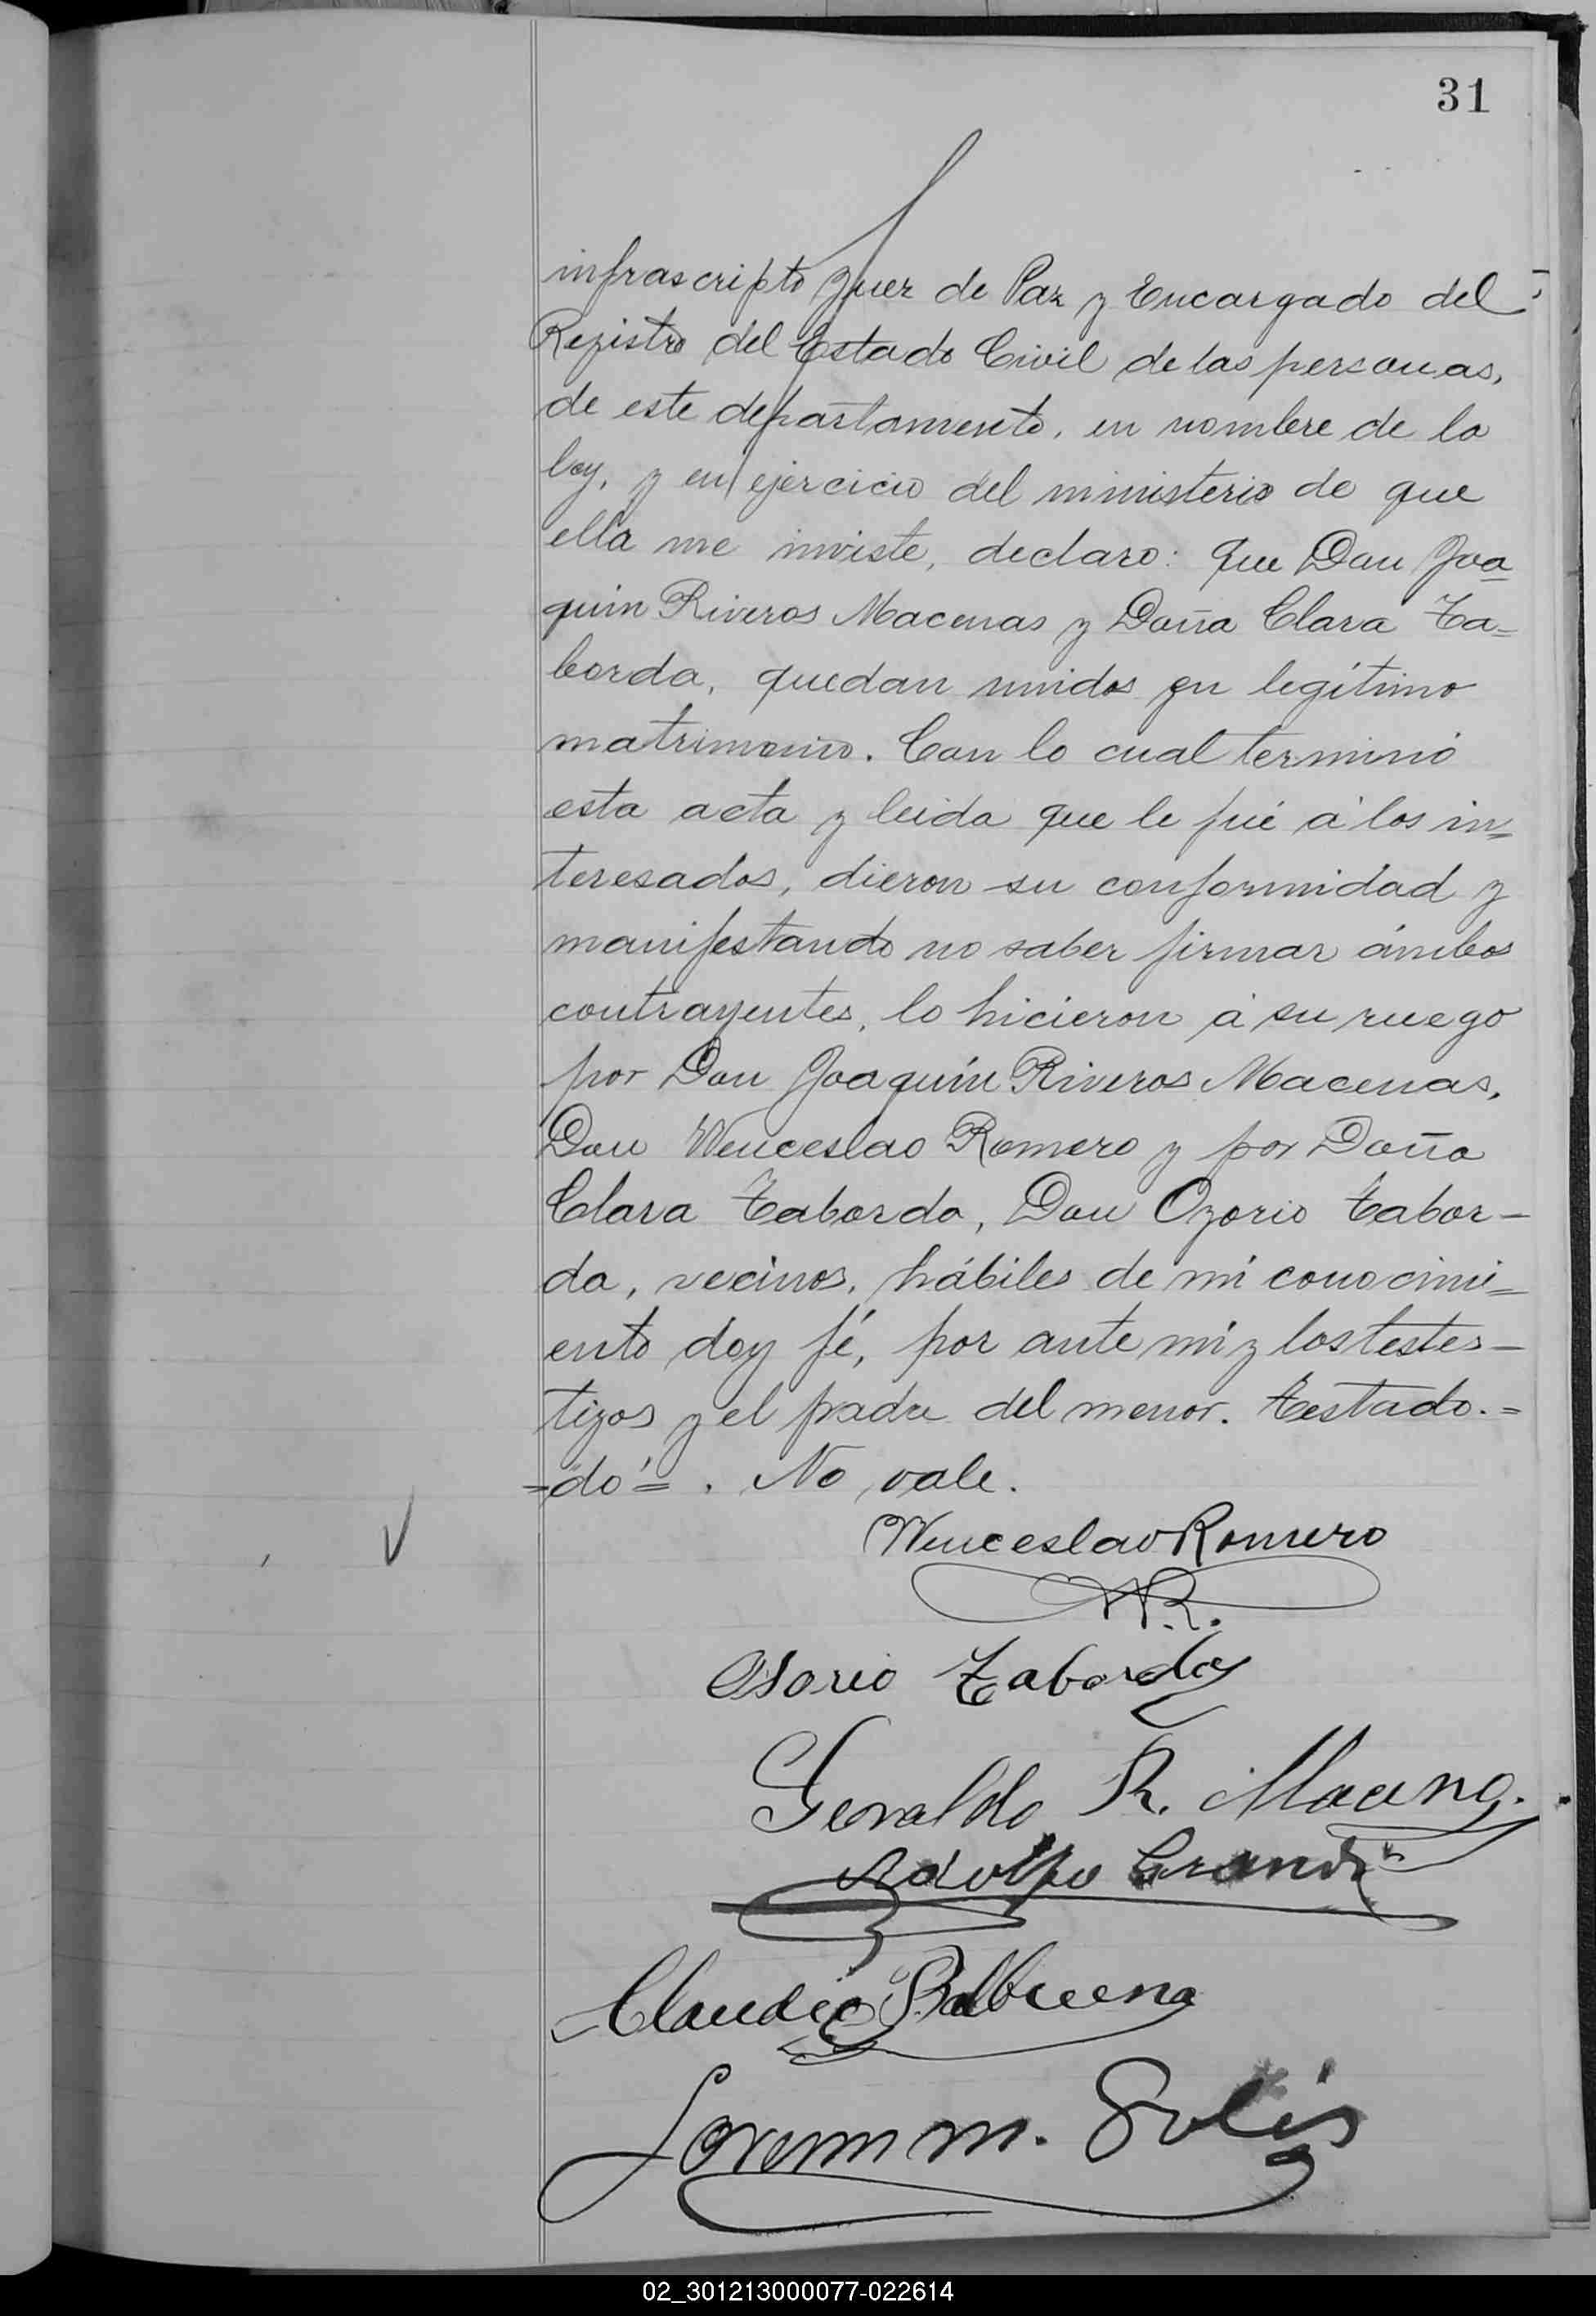 31
infrascripto Juez de Paz y Encargado del
Registro del Estado Civil de las personas,
de este departamento, en nombre de la
ley, y en ejercicio del ministerio de que
ella me inviste, declaro: que Don Joa
quin Riveros Macenas y Doña Clara Ta=
borda, quedan unidos en legítimo
matrimonio. Con lo cual terminó
esta acta y leida que le fué á los in=
teresados, dieron su conformidad y
manifestando no saber firmar ámbos
contrayentes, lo hicieron á su ruego
por Don Joaquín Riveros Macenas,
Don Wenceslao Romero y por Doña
Clara Taborda, Don Ozorio Tabor-
da, vecinos, hábiles de mi conocimi=
ento doy fé, por ante mí y los testes-
tigos y el padre del menor. Testado.=
=do=. No vale.
Wenceslao Romero
W.R.
Osorio Taborda
Geraldo R.
Adolfo
Claudio Balbuena
M. Solis
02_301213000077-022614